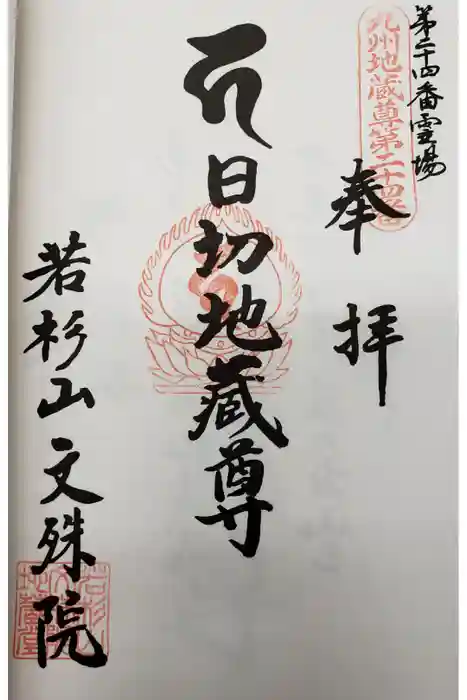 第二十四番霊場
九州地蔵尊第二十四番
奉拝
日切地蔵尊
若杉山文殊院